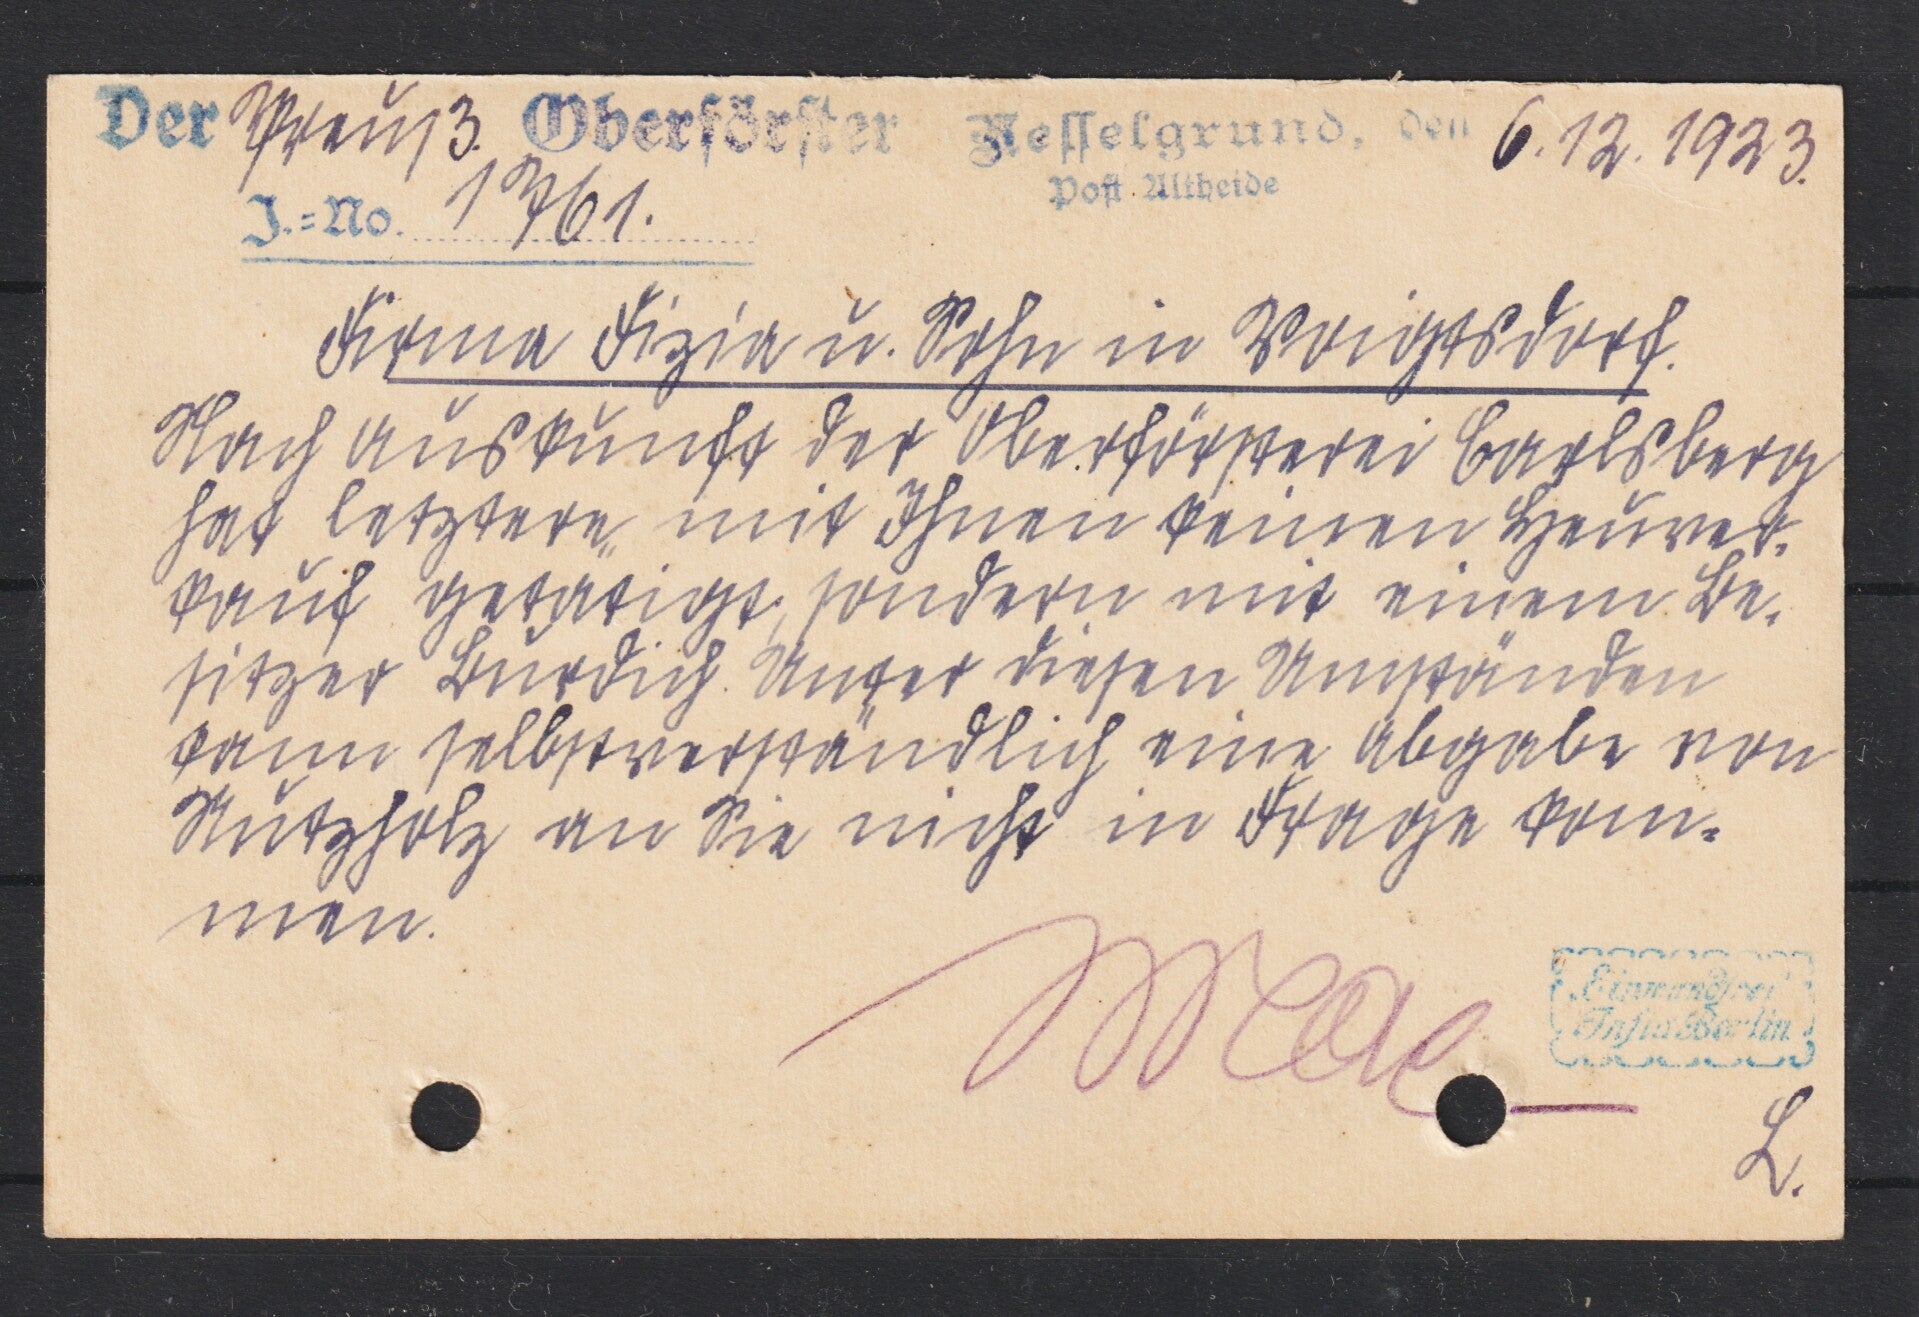 Der Preuß. Oberförster Nesselgrund, den 6.12.1923.
Post Altheide
J.=No. 1761.
Firma Fizia u. Sohn in Voigtsdorf.
Nach Auskunft der Oberförsterei Carlsberg
hat letztere mit Ihnen keinen Heuver-
kauf getätigt, sondern mit einem Be-
sitzer Burdich. Unter diesen Umständen
kann selbstverständlich eine Abgabe von
Nutzholz an Sie nicht in Frage kom-
men.
Einwandfrei
Infla Berlin
L.